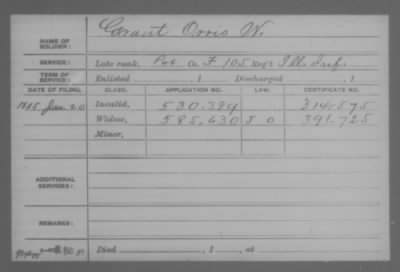 NAME OF SOLDIER: Garant Orris W.
SERVICE: Late rank, Pvt. Co. F, 105 Reg't Ill. Inf.
TERM OF SERVICE: Enlisted , 1 Discharged , 1
DATE OF FILING. CLASS. APPLICATION NO. LAW. CERTIFICATE NO.
Jan. 20 Invalid, 530.384 314.575
Widow, 585,630 S O 391.725
Minor,
ADDITIONAL SERVICES:
REMARKS:
Died , 1 , at